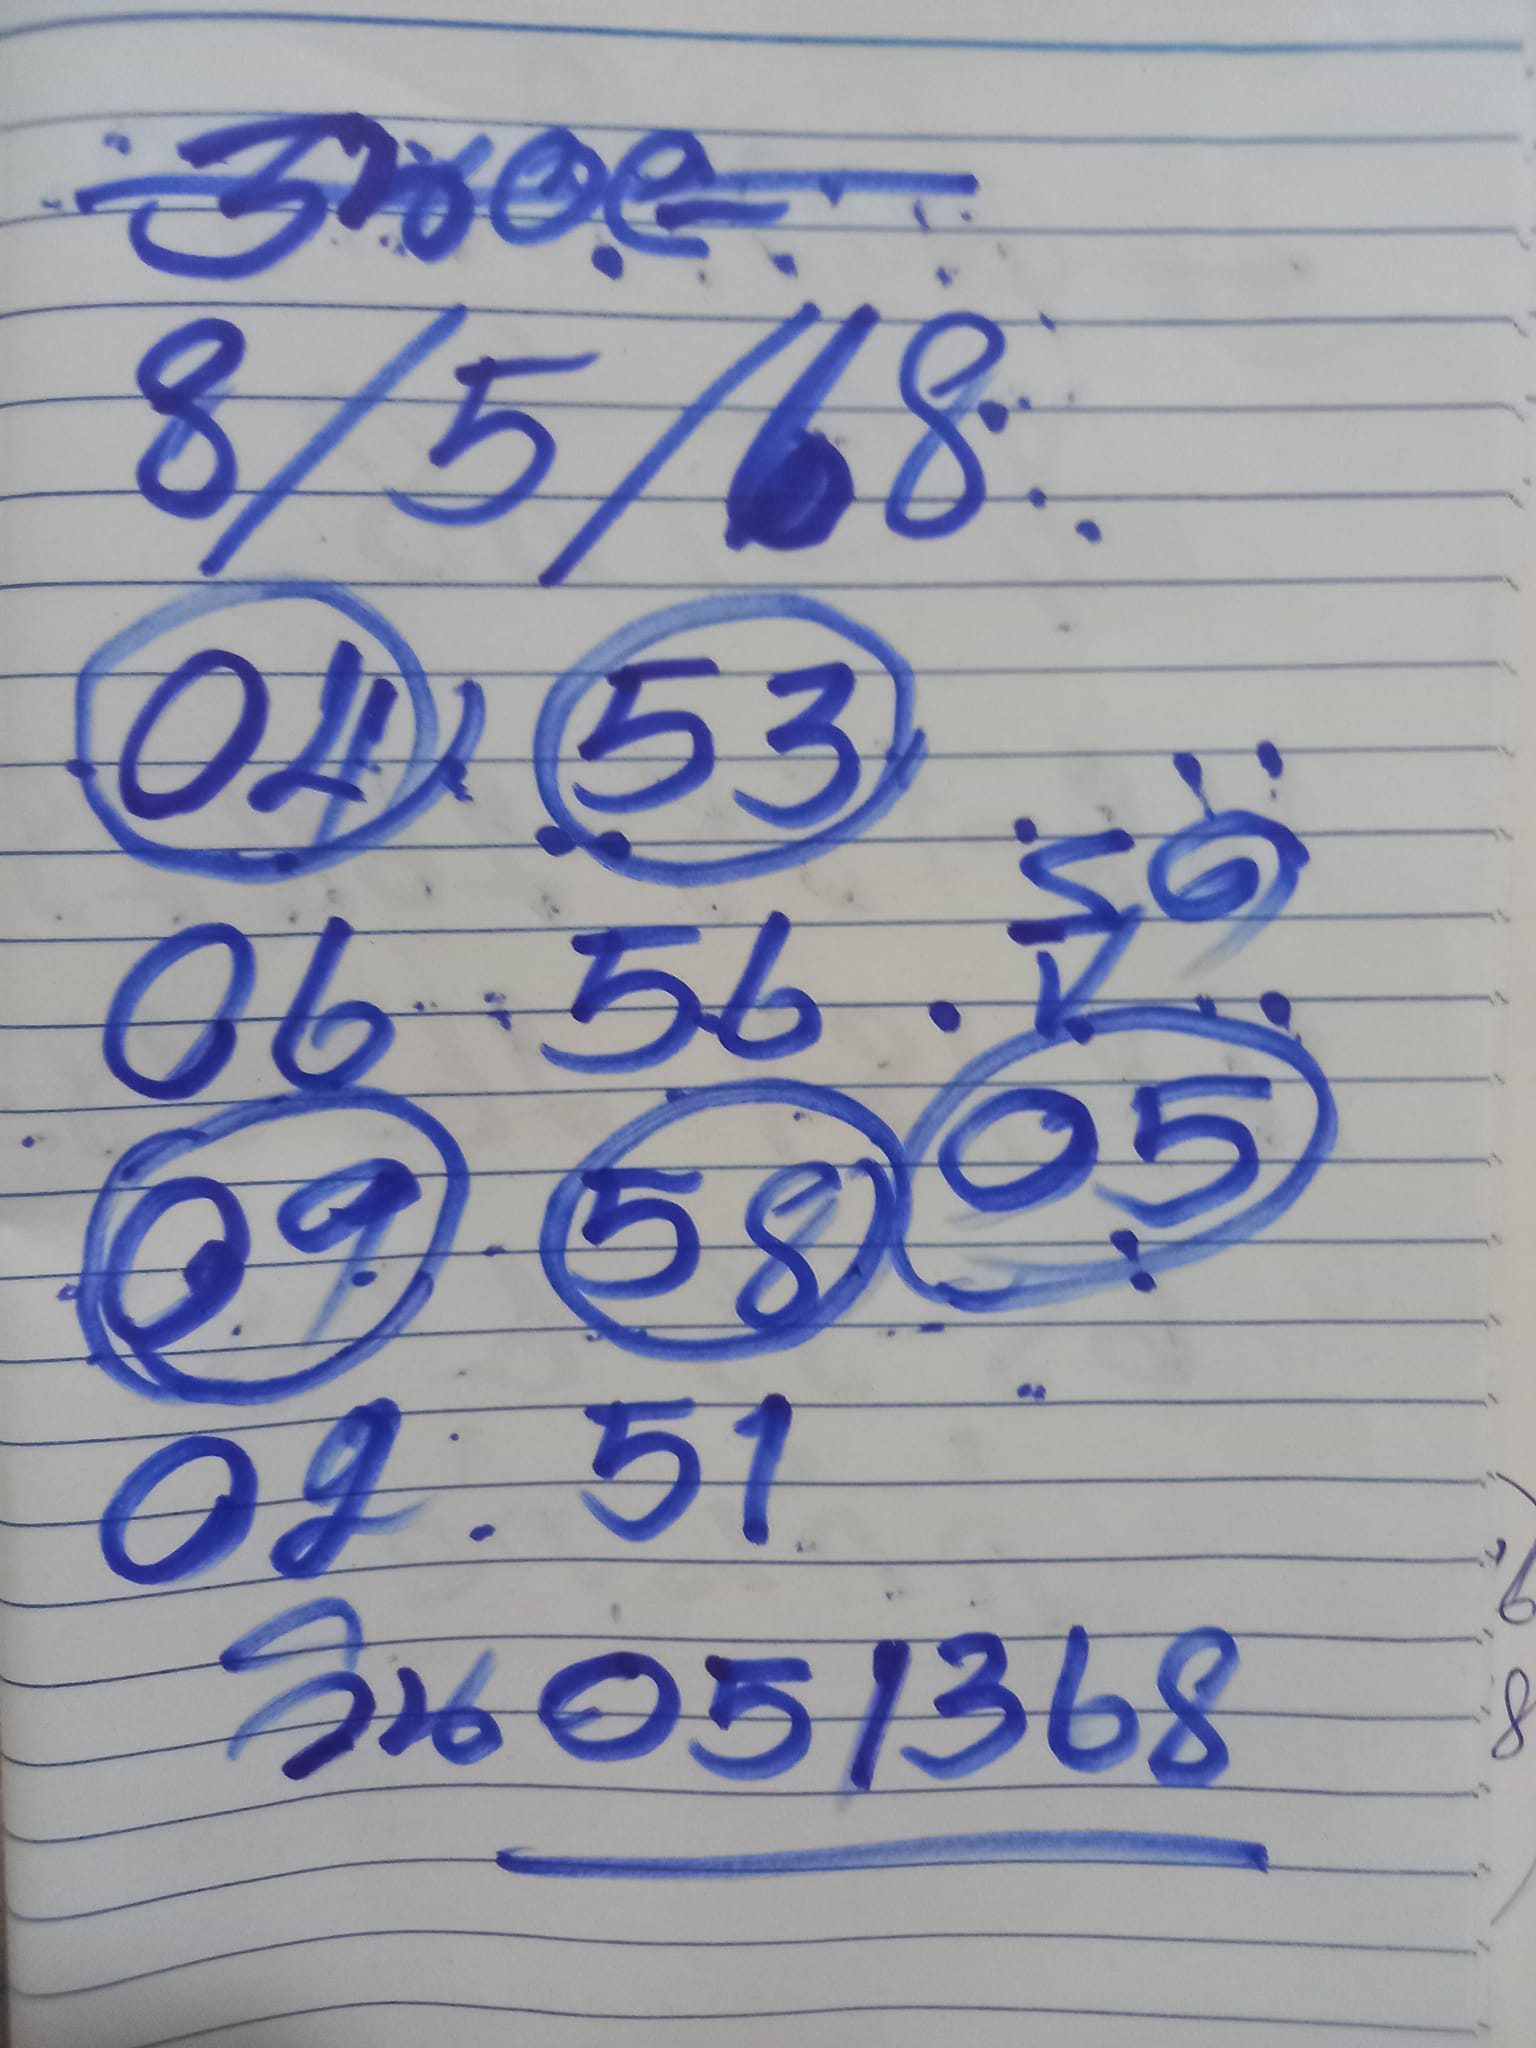 8/5/68
04 53
06 56
09 58 05
02 51
วิน 051368
6
8